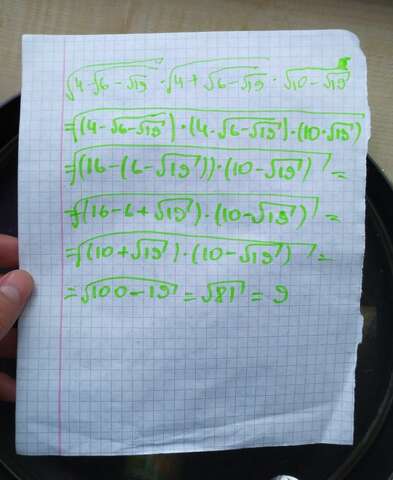 √(4-√(6-√19)) · √(4+√(6-√19)) · √(10-√19)
=√((4-√(6-√19))·(4·√(6-√19))·(10·√19))
=√((16-(6-√19))·(10-√19)) =
=√((16-6+√19)·(10-√19)) =
=√((10+√19)·(10-√19)) =
=√(100-19) = √81 = 9